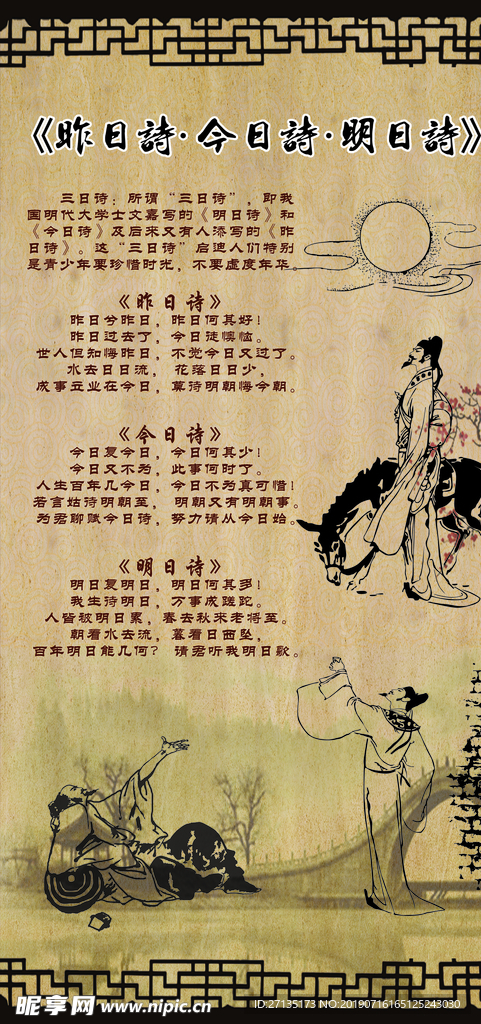 《昨日詩·今日詩·明日詩》
三日诗：所谓“三日诗”，即我
国明代大学士文嘉写的《明日诗》和
《今日诗》及后来又有人添写的《昨
日诗》。这“三日诗”启迪人们特别
是青少年要珍惜时光，不要虚度年华。
《昨日诗》
昨日兮昨日，昨日何其好！
昨日过去了，今日徒懊恼。
世人但知悔昨日，不觉今日又过了。
水去日日流，花落日日少，
成事立业在今日，莫待明朝悔今朝。
《今日诗》
今日复今日，今日何其少！
今日又不为，此事何时了。
人生百年几今日，今日不为真可惜！
若言姑待明朝至，明朝又有明朝事。
为君聊赋今日诗，努力请从今日始。
《明日诗》
明日复明日，明日何其多！
我生待明日，万事成蹉跎。
人皆被明日累，春去秋来老将至。
朝看水去流，暮看日西坠，
百年明日能几何？请君听我明日歌。
昵享网 www.nipic.cn
ID:27135173 NO:20190716165125243030